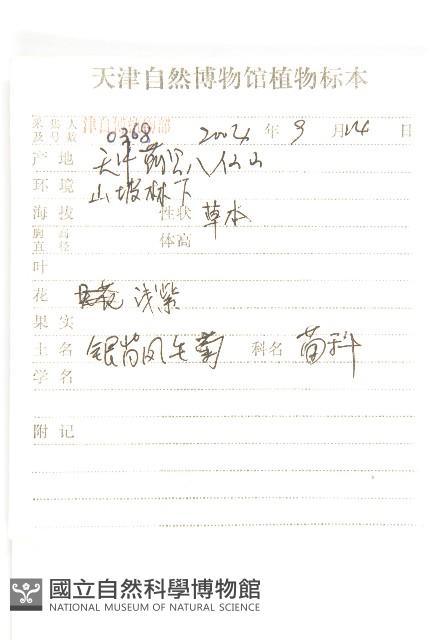 天津自然博物馆植物标本
采集人及号数 津自博植物部 0368 2004 年 9 月 14 日
产地 天津蓟县八仙山
环境 山坡林下
海拔 性状 草本
胸高直径 体高
叶
花 浅紫
果实
土名 银背风毛菊 科名 菊科
学名
附记
國立自然科學博物館
NATIONAL MUSEUM OF NATURAL SCIENCE